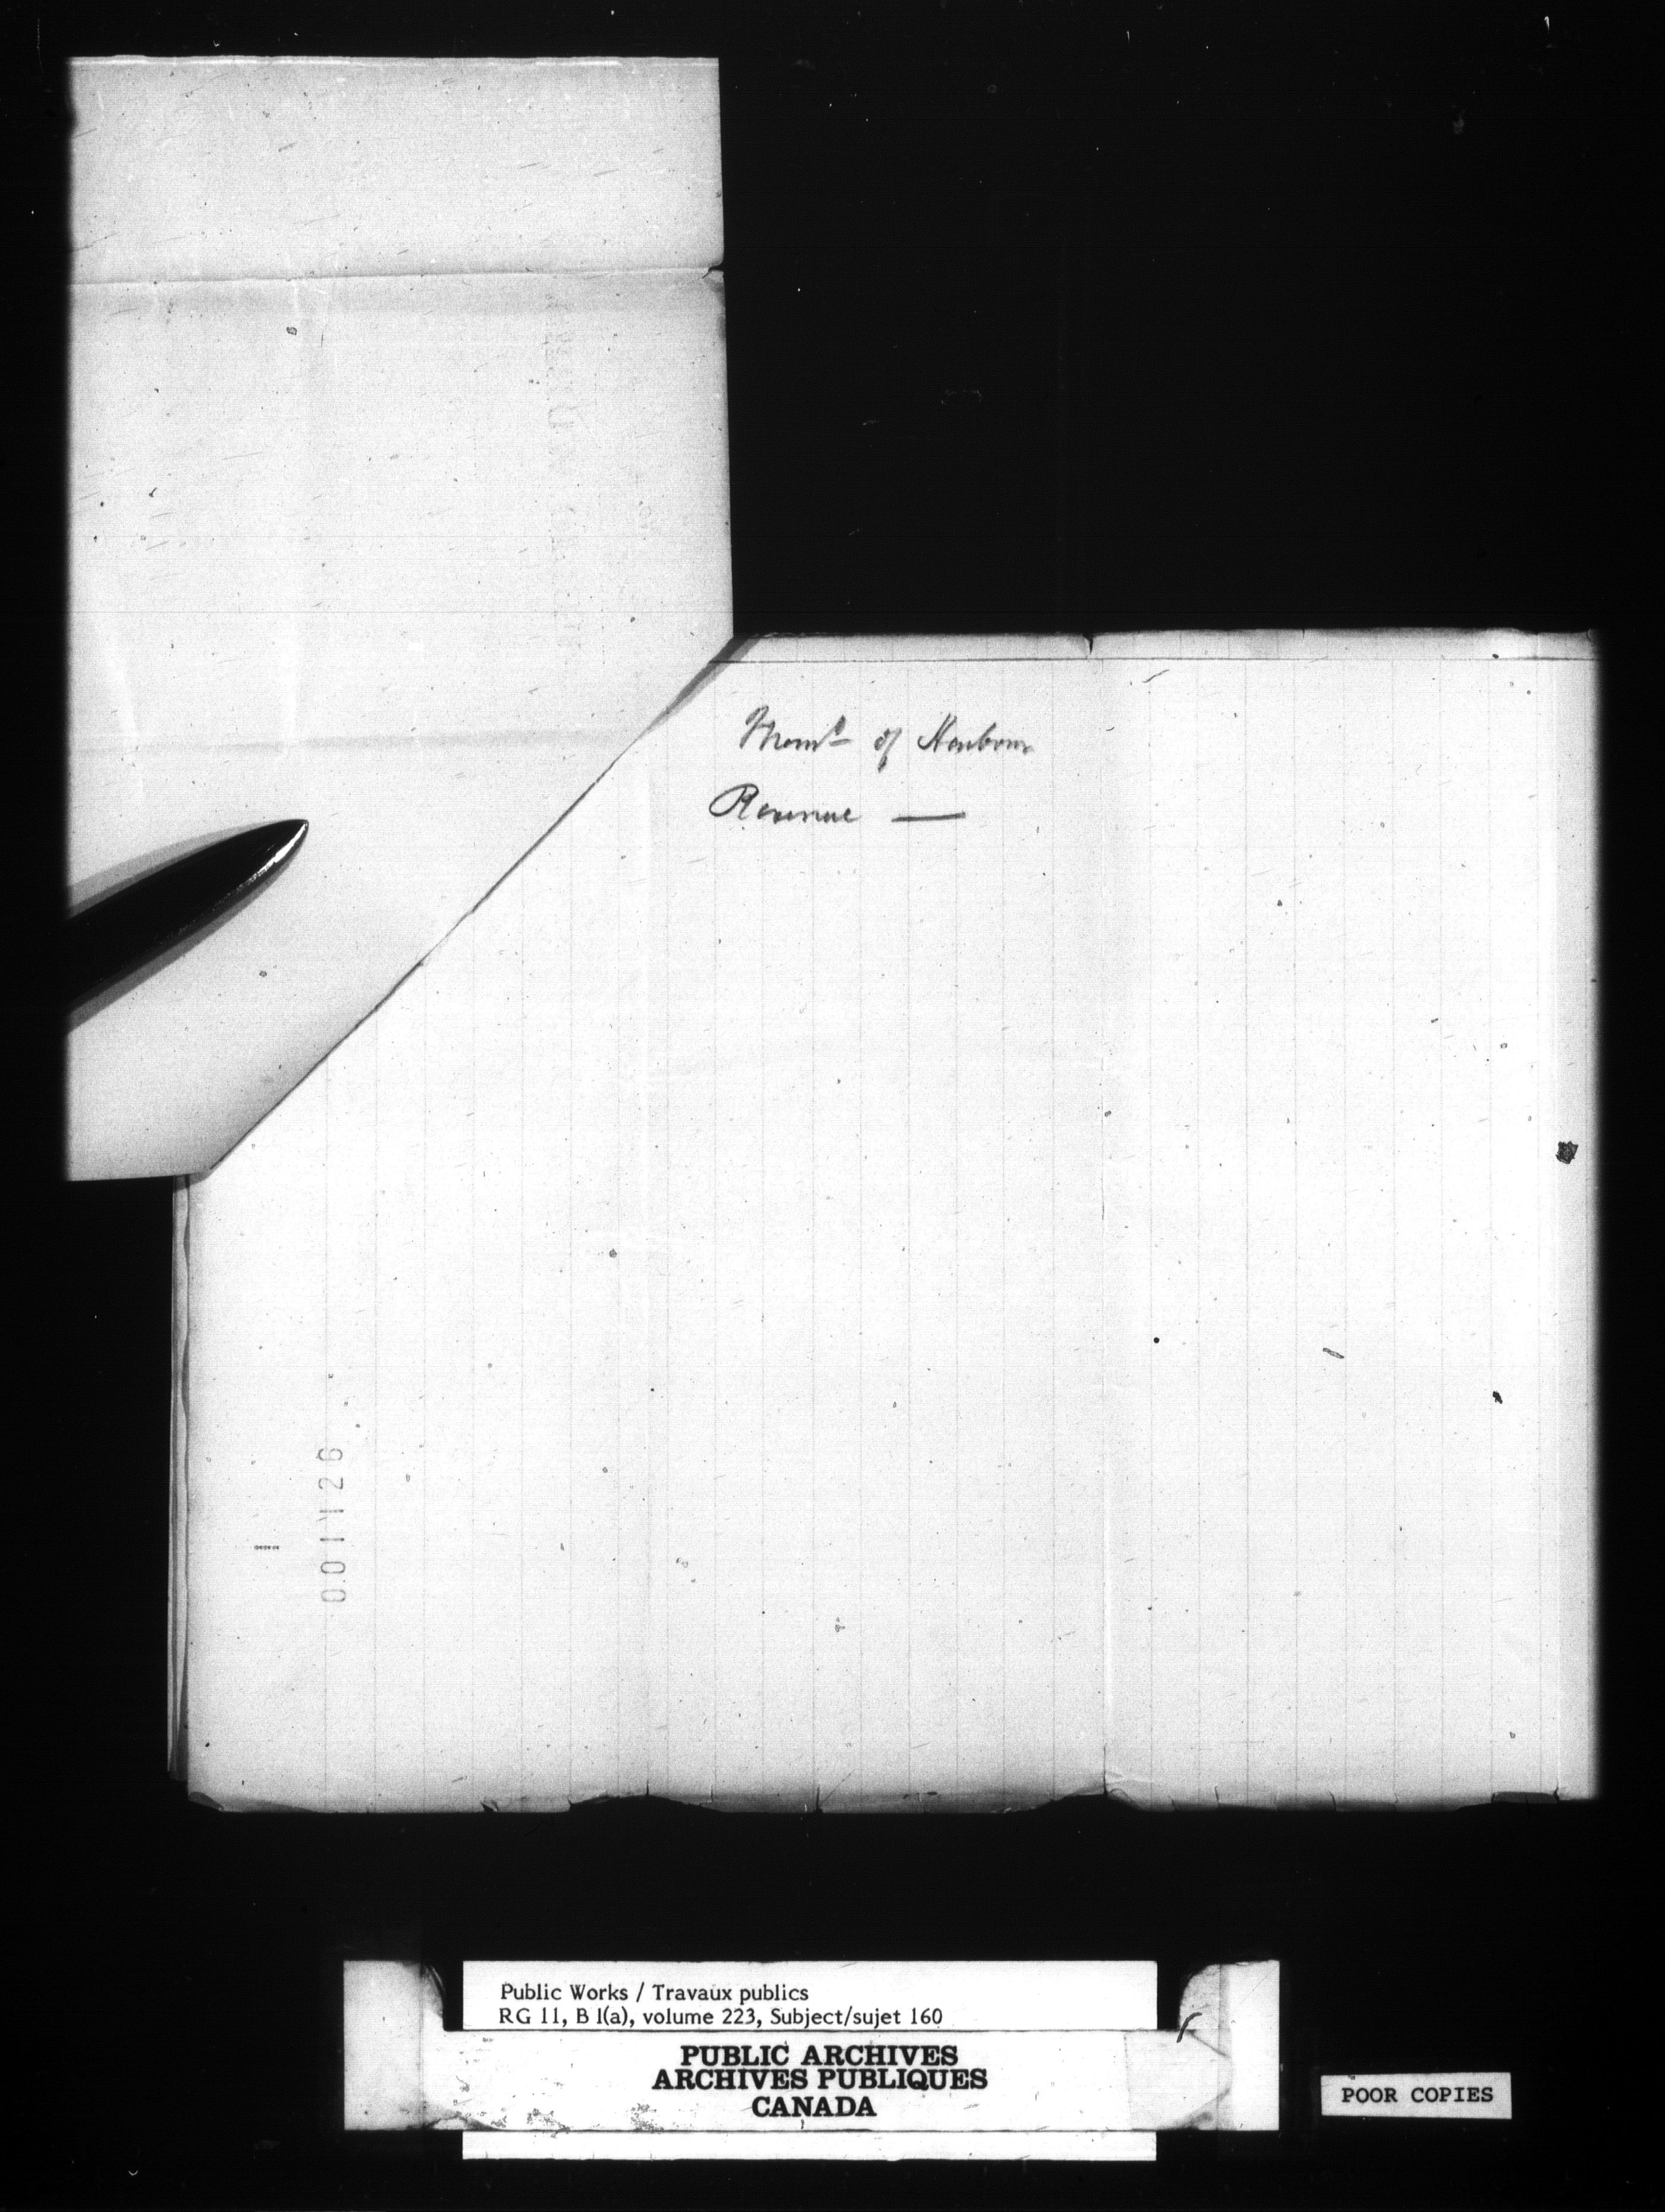 of Harbour
Revenue —
001126
Public Works / Travaux publics
RG 11, B 1(a), volume 223, Subject/sujet 160
PUBLIC ARCHIVES
ARCHIVES PUBLIQUES
CANADA
POOR COPIES